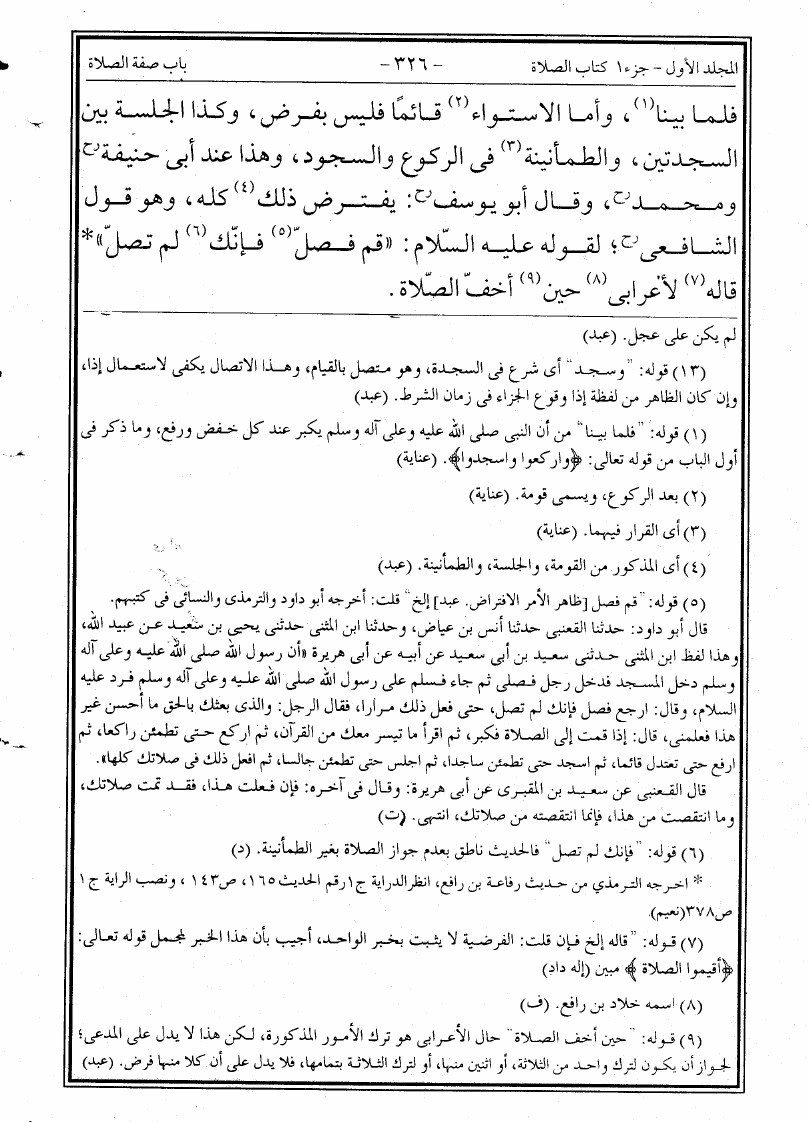 المجلد الأول – جزء ١ كتاب الصلاة - ٣٢٦ - باب صفة الصلاة
فلما بينا(١)، وأما الاستواء(٢) قائمًا فليس بفرض، وكذا الجلسة بين
السجدتين، والطمأنينة(٣) فى الركوع والسجود، وهذا عند أبى حنيفة رح
ومحمد رح، وقال أبو يوسف رح: يفترض ذلك(٤) كله، وهو قول
الشافعى رح؛ لقوله عليه السّلام: «قم فصلّ(٥) فإنّك(٦) لم تصلّ»*
قاله(٧) لأعرابى(٨) حين(٩) أخفّ الصّلاة.
لم يكن على عجل. (عبد)
(١٣) قوله: "وسجد" أى شرع فى السجدة، وهو متصل بالقيام، وهذا الاتصال يكفى لاستعمال إذا،
وإن كان الظاهر من لفظة إذا وقوع الجزاء فى زمان الشرط. (عبد)
(١) قوله: "فلما بينا" من أن النبى صلى الله عليه وعلى آله وسلم يكبر عند كل خفض ورفع، وما ذكر فى
أول الباب من قوله تعالى: ﴿واركعوا واسجدوا﴾. (عناية)
(٢) بعد الركوع، ويسمى قومة. (عناية)
(٣) أى القرار فيهما. (عناية)
(٤) أى المذكور من القومة، والجلسة، والطمأنينة. (عبد)
(٥) قوله: "قم فصل [ظاهر الأمر الافتراض. عبد] إلخ" قلت: أخرجه أبو داود والترمذى والنسائى فى كتبهم.
قال أبو داود: حدثنا القعنبى حدثنا أنس بن عياض، وحدثنا ابن المثنى حدثنى يحيى بن سعيد عن عبيد الله،
وهذا لفظ ابن المثنى حدثنى سعيد بن أبى سعيد عن أبيه عن أبى هريرة «أن رسول الله صلى الله عليه وعلى آله
وسلم دخل المسجد فدخل رجل فصلى ثم جاء فسلم على رسول الله صلى الله عليه وعلى آله وسلم فرد عليه
السلام، وقال: ارجع فصل فإنك لم تصل، حتى فعل ذلك مرارا، فقال الرجل: والذى بعثك بالحق ما أحسن غير
هذا فعلمنى، قال: إذا قمت إلى الصلاة فكبر، ثم اقرأ ما تيسر معك من القرآن، ثم اركع حتى تطمئن راكعا، ثم
ارفع حتى تعتدل قائما، ثم اسجد حتى تطمئن ساجدا، ثم اجلس حتى تطمئن جالسا، ثم افعل ذلك فى صلاتك كلها».
قال القعنبى عن سعيد بن المقبرى عن أبى هريرة: وقال فى آخره: فإن فعلت هذا، فقد تمت صلاتك،
وما انتقصت من هذا، فإنما انتقصته من صلاتك، انتهى. (ت)
(٦) قوله: "فإنك لم تصل" فالحديث ناطق بعدم جواز الصلاة بغير الطمأنينة. (د)
* اخرجه الترمذي من حديث رفاعة بن رافع، انظرالدراية ج١رقم الحديث١٦٥، ص١٤٣، ونصب الراية ج١
ص٣٧٨(نعيم).
(٧) قوله: "قاله إلخ فإن قلت: الفرضية لا يثبت بخبر الواحد، أجيب بأن هذا الخبر لمجمل قوله تعالى:
﴿أقيموا الصلاة﴾ مبين (إله داد)
(٨) اسمه خلاد بن رافع. (ف)
(٩) قوله: "حين أخف الصلاة" حال الأعرابى هو ترك الأمور المذكورة، لكن هذا لا يدل على المدعى؛
لجواز أن يكون لترك واحد من الثلاثة، أو اثنين منها، أو لترك الثلاثة بتمامها، فلا يدل على أن كلا منها فرض. (عبد)